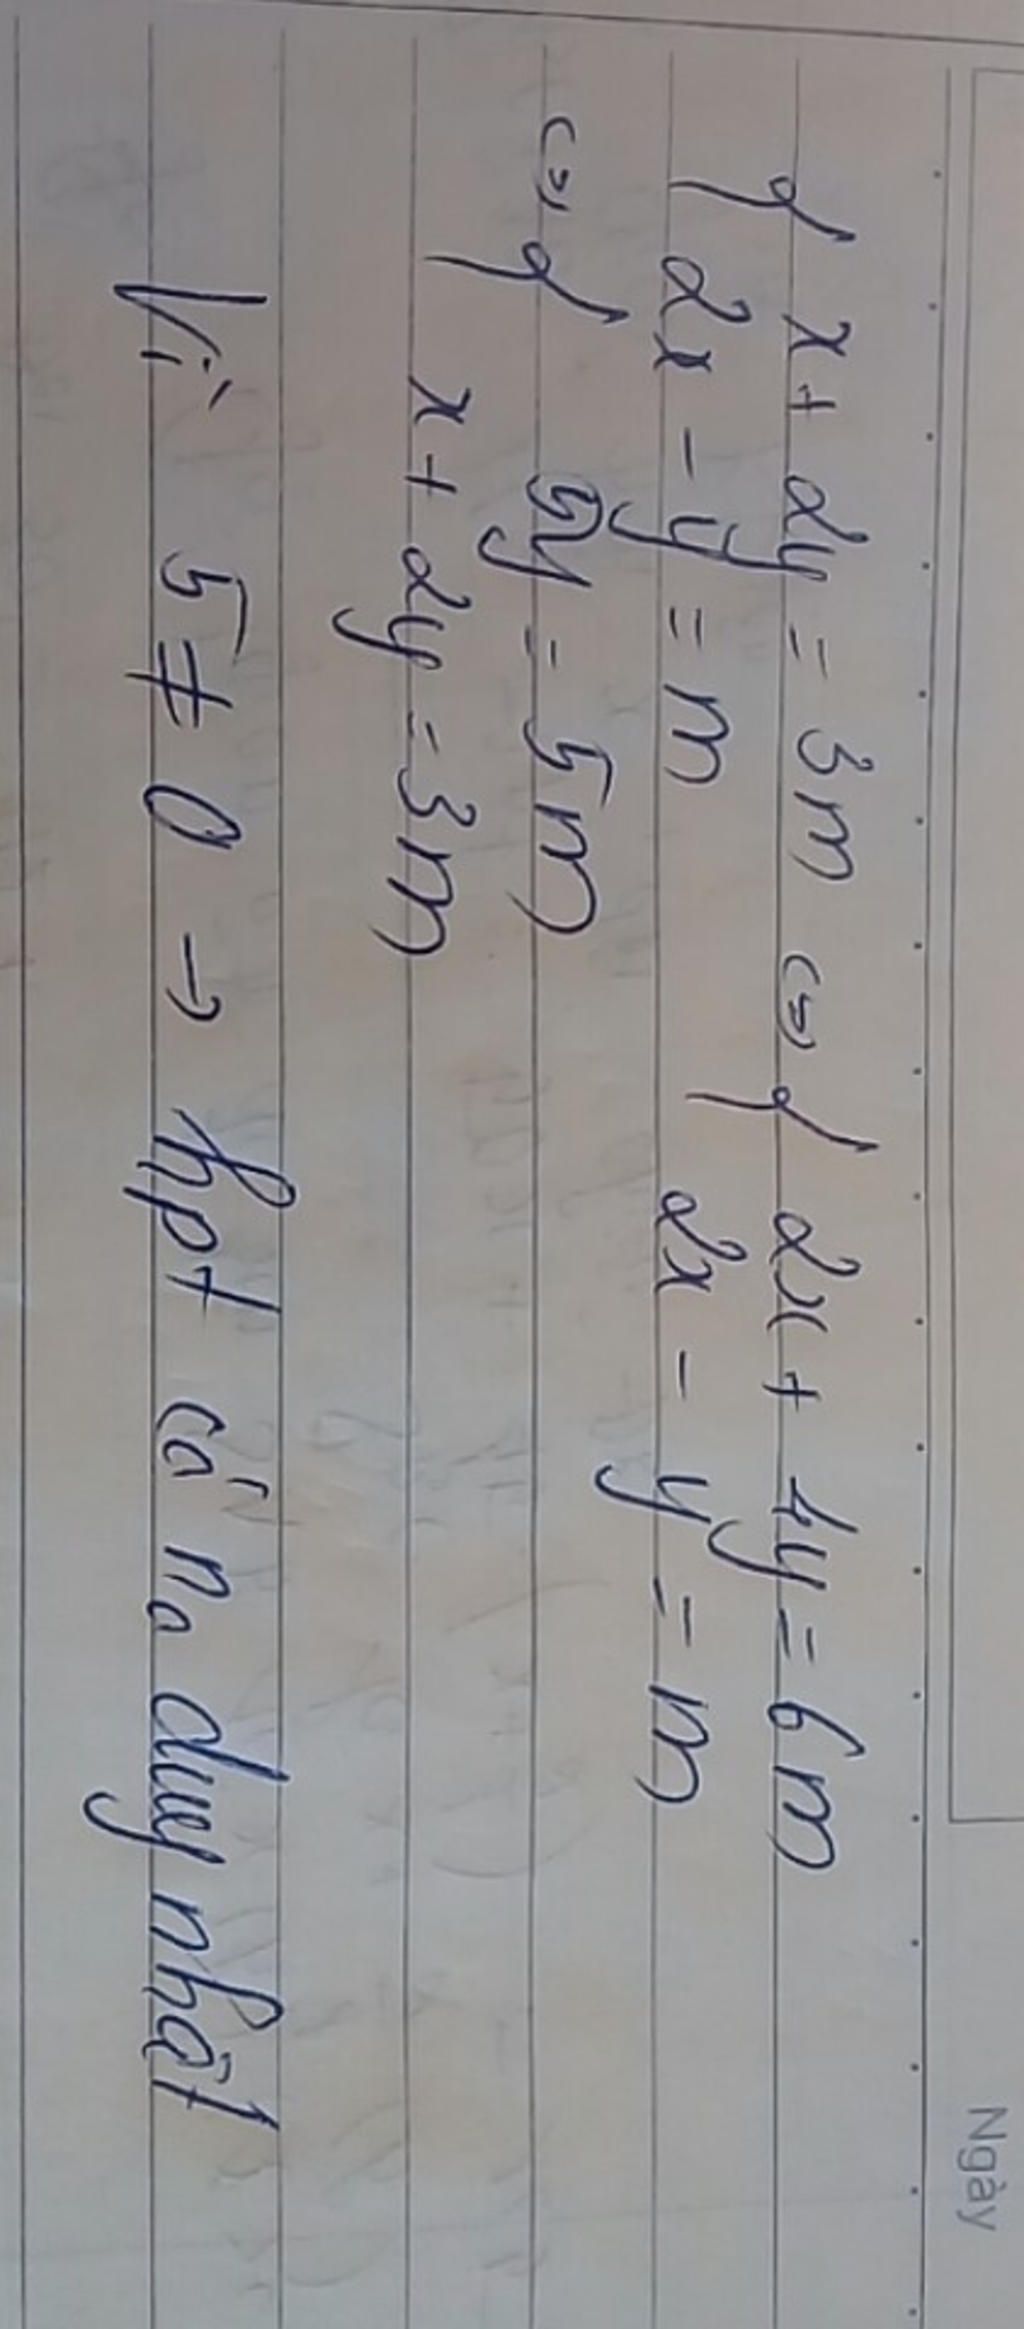 Ngày
{ x + 2y = 3m <=> { 2x + 4y = 6m
2x - y = m 2x - y = m
<=> { 5y = 5m
x + 2y = 3m
Vì 5 ≠ 0 → hpt có no duy nhất